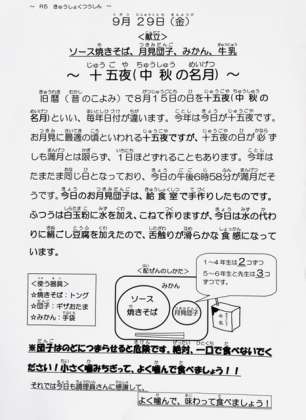 ～ R5 きゅうしょくつうしん ～
9月 29日（金）
＜献立＞
ソース焼きそば、月見団子、みかん、牛乳
～ 十五夜（中秋の名月）～
旧暦（昔のこよみ）で8月15日の日を十五夜（中秋の
名月）といい、毎年日付が違います。今年は今日が十五夜です。
お月見に最適の頃といわれる十五夜ですが、十五夜の日が必ず
しも満月とは限らず、1日ほどずれることもあります。今年は
たまたま同じ日となっており、今日の午後6時58分が満月だそ
うです。今日のお月見団子は、給食室で手作りしたものです。
ふつうは白玉粉に水を加え、こねて作りますが、今日は水の代わ
りに絹ごし豆腐を加えたので、舌触りが滑らかな食感になって
います。
＜使う器具＞
☆焼きそば：トング
☆団子：ギザおたま
☆みかん：手袋
＜配ぜんのしかた＞
みかん
ソース
焼きそば
月見団子
1～4年生は2こずつ
5～6年生と先生は3こ
ずつです。
※団子はのどにつまらせると危険です。絶対、一口で食べないでく
ださい！小さく噛みちぎって、よく噛んで食べましょう！！
それでは今日も調理員さんに感謝して、
よく噛んで、味わって食べましょう！